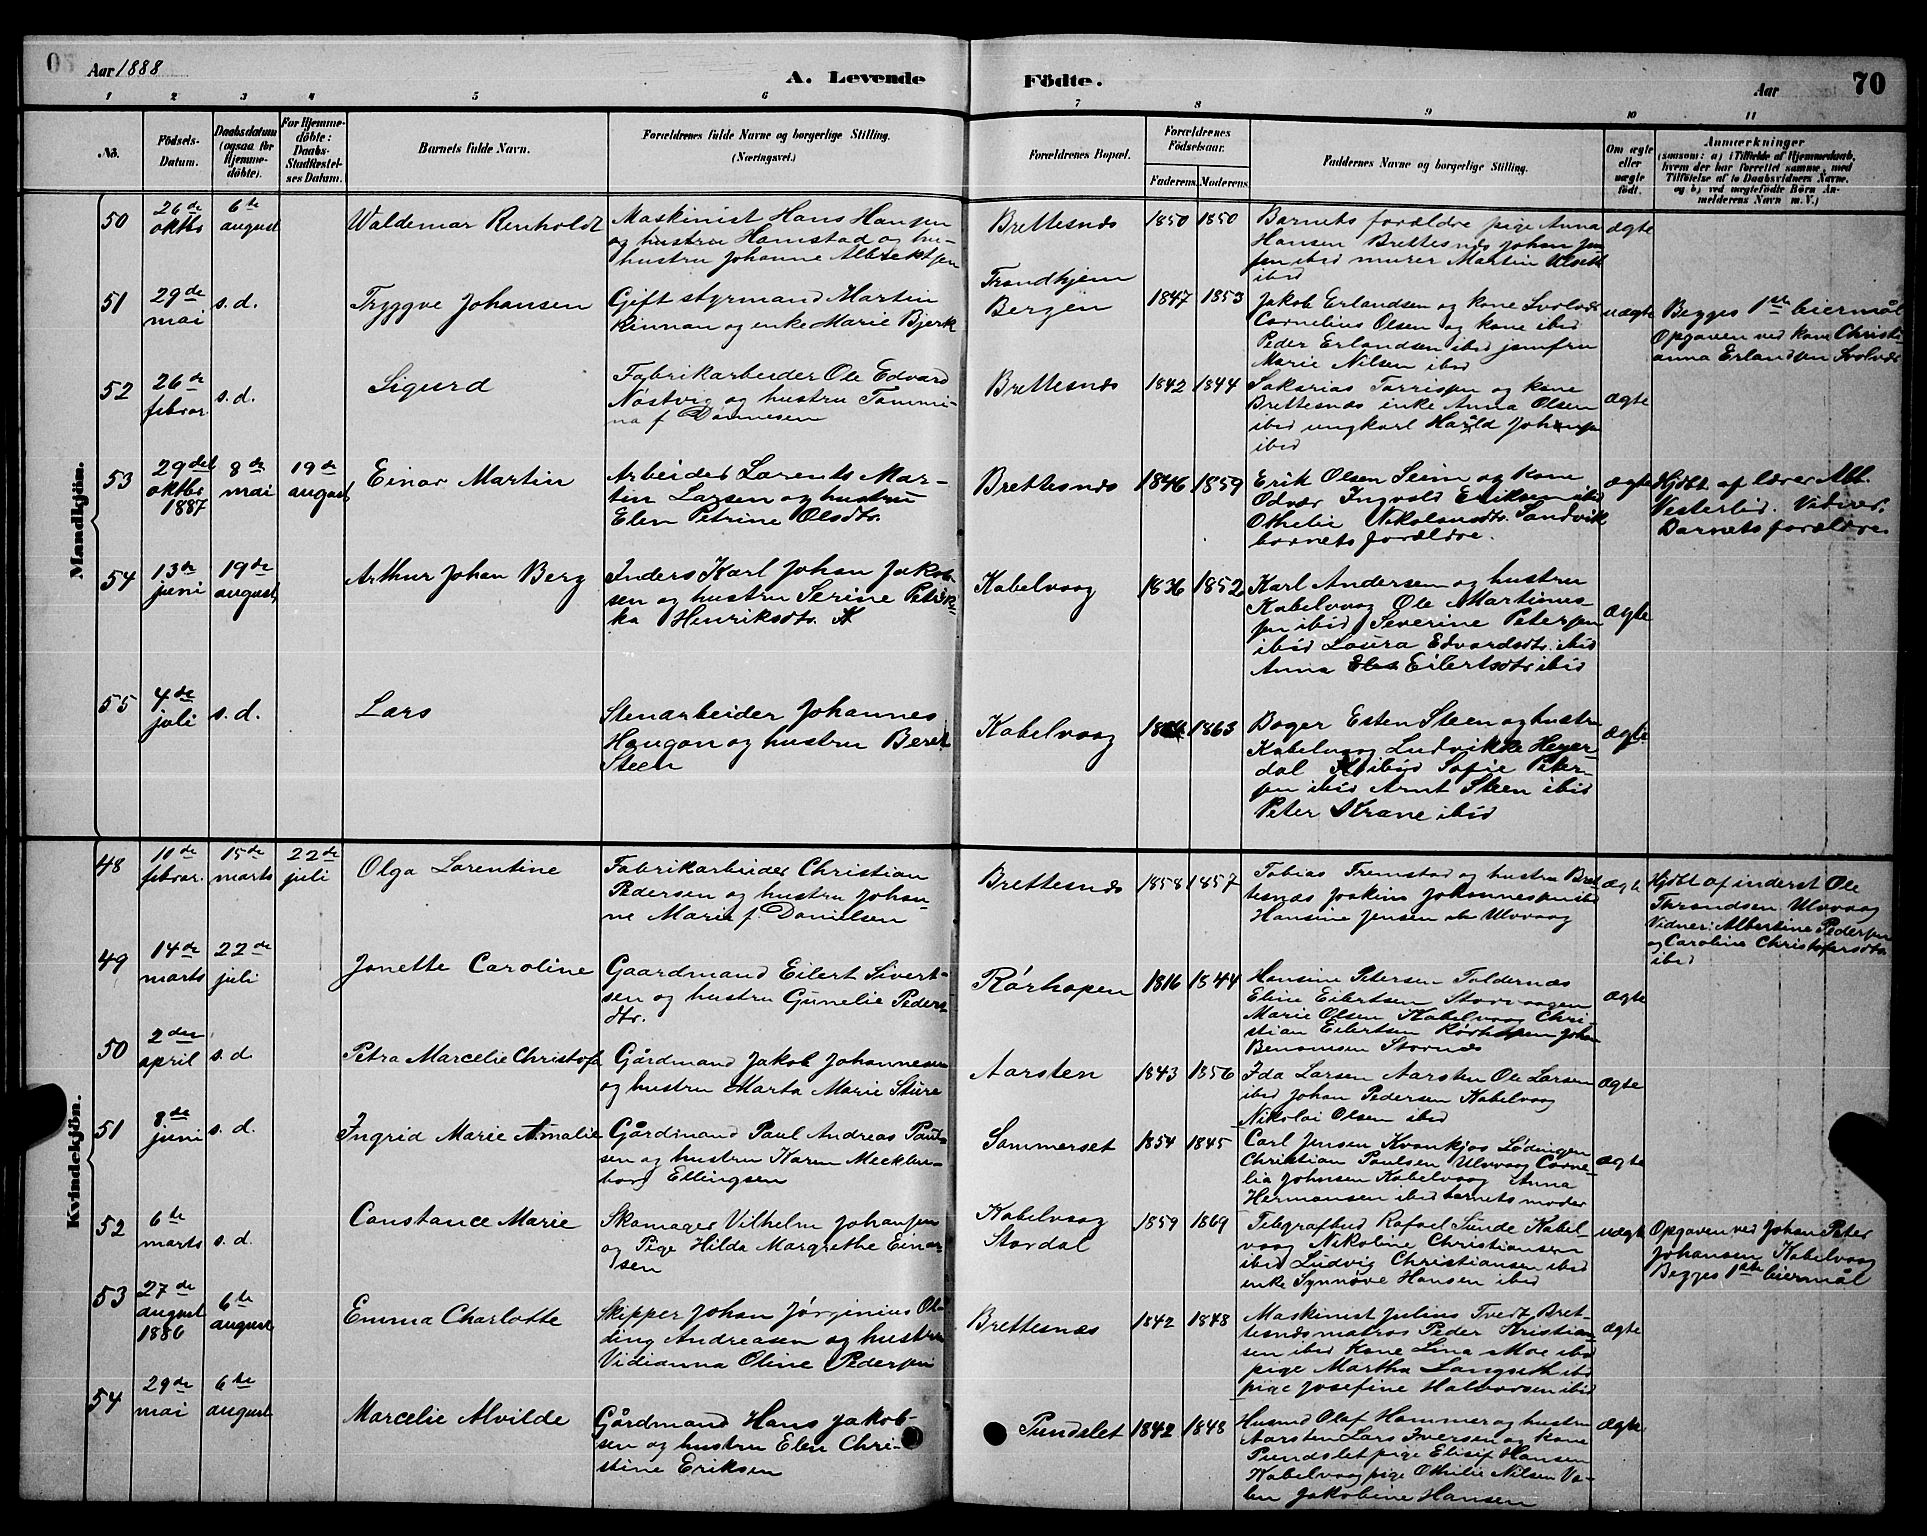 Aar 1888
A. Levende Födte.
Aar
70
1 2 3 4 5 6 7 8 9 10 11
No.
Födsels-Datum.
Daabsdatum (ogsaa for Hjemme-döbte).
For Hjemme-döbte: Daabs-Stadfæstel-ses Datum.
Barnets fulde Navn.
Forældrenes fulde Navne og borgerlige Stilling.
(Næringsvei.)
Forældrenes Bopæl.
Forældrenes Födselsaar.
Faderens. Moderens.
Faddernes Navne og borgerlige Stilling.
Om ægte eller uægte födt.
Anmærkninger
(saasom: a) i Tilfælde af Hjemmedaab,
hvem der har forrettet samme, med
Tilföielse af to Daabsvidners Navne.
og b) ved uegtefödte Börn An-
melderens Navn m. V.)
Mandkjön.
50 26de oktbr 6te august Waldemar Renholdt
Maskinist Hans Hansen
og hustru Hamstad og hu-
hustru Johanne Albrektsen
Brettesnæs 1850 1850
Barnets forældre pige Anna
Hansen Brettesnæs Johan Jen
sen ibid murer Martin
ibid
ægte
51 29de mai s. d. Tryggve Johansen
Gift styrmand Martin
Kinnan og enke Marie Bjerk
Trondhjem
Bergen 1847 1853
Jakob Erlandsen og kone Svolvær
Cornelius Olsen og kone ibid
Peder Erlandsen ibid jomfru
Marie Nilsen ibid
uægte
Begges 1ste leiermål
Opgaven ved kone Christi-
anna Erlandsen Svolvær
52 26de febrar s. d. Sigurd
Fabrikarbeider Ole Edvard
Nostvig og hustru Tommi-
na f Dönnesen
Brettesnæs 1842 1844
Sakarias Torrissen og kone
Brettesnæs enke Anna Olsen
ibid ungkarl Harald Johansen
ibid
ægte
53 29de oktbr 1887 8de mai 19de august Einar Martin
Arbeider Lorents Mar-
tin Larsen og hustru
Elen Petrine Olsdtr.
Brettesnæs 1846 1859
Erik Olsen Seim og kone
Odvær Ingvald Eriksen ibid
Othelie Nikolausdtr. Sandvik
barnets forældre.
ægte
Hjdbt af lærer Alb.
Vesterlid. Vidner:
Barnets forældre
54 13de juni 19de august Arthur Johan Berg
Inders Karl Johan Jakob-
sen og hustru Serine Petrik-
ka Henriksdtr.
Kabelvaag 1836 1852
Karl Andersen og hustru
Kabelvaag Ole Martinus-
sen ibid Severine Petersen
ibid Laura Edvardsdtr. ibid
Anna Eilertsdtr ibid
ægte
55 4de juli s. d. Lars
Stenarbeider Johannes
Haugan og hustru Beret
Steen
Kabelvaag 1863
Bager Esten Steen og hustru
Kabelvaag Ludvikke Heyer-
dal ibid Sofie Peter-
sen ibid Arnt Steen ibid
Peter Strane ibid
ægte
Kvindekjön.
48 11de febrar. 15de marts 22de juli Olga Lorentine
Fabrikarbeider Christian
Pedersen og hustru Johan-
ne Marie f. Danielsen
Brettesnæs 1858 1857
Tobias Tremstad og hustru Bret
tesnæs Joakim Johannessen ibid
Hansine Jensen Ulvvaag
ægte
Hjdbt af inderst Ole
Throndsen Ulvvaag
Vidner: Albertine Pedersen
og Caroline Christofersdtr
ibid
49 14de marts 22de juli Jonette Caroline
Gaardmand Eilert Sivert-
sen og hustru Gunelie Peders-
dtr.
Rörhopen 1816 1844
Hansine Petersen Toldernæs
Eline Eilertsen Storvaagen
Marie Olsen Kabelvaag Chri-
stian Eilertsen Rörhopen Johan
Benonisen Stornæs
ægte
50 2den april s. d Petra Marcelie Christofa
Gårdmand Jakob Johannesen
og hustru Marta Marie Sture
Aarsten 1843 1856
Ida Larsen Aarsten Ole Larsen
ibid Johan Pedersen Kabelvaag
Nikolai Olsen ibid
ægte
51 8de juni s. d. Ingrid Marie Amalie
Gårdmand Paul Andreas Paul-
sen og hustru Karen Mecklen-
borg Ellingsen
Sommerset 1854 1845
Carl Jensen Kvankjos Lødingen
Christian Paulsen Ulvvaag Corne-
lia Johnsen Kabelvaag Anna
Hermansen ibid barnets moder
ægte
52 6te marts s. d. Constance Marie
Skomager Vilhelm Johansen
og Pige Hilda Margrethe Einar-
sen
Kabelvaag
Stordal 1859 1869
Telegrafbud Rafael Sunde Kabel-
vaag Nikoline Christiansen
ibid Ludvig Christiansen ibid
enke Synnöve Hansen ibid
uægte
Opgaven ved Johan Peter
Johansen Kabelvaag
Begges 1ste leiermål
53 27de august 1886 6te august Emma Charlotte
Skipper Johan Jörginius Ol-
ding Andreasen og hustru
Vidianna Oline Pedersen
Brettesnæs 1842 1848
Maskinist Julius Tvedt Bret-
tesnæs matros Peder Kristian-
sen ibid Kone Lina Moe ibid
pige Martha Langseth ibid
pige Josefine Halvorsen ibid
ægte
54 29de mai 6te august Marcelie Alvilde
Gårdmand Hans Jakob-
sen og hustru Elen Chri-
stine Eriksen
Pundslet 1842 1848
Husmd Olaf Hammer og hustru
Aarsten Lars Iversen og kone
Pundslet pige Elisif Hansen
Kabelvaag pige Othilie Nilsen Va-
len Jakobine Hansen
ægte